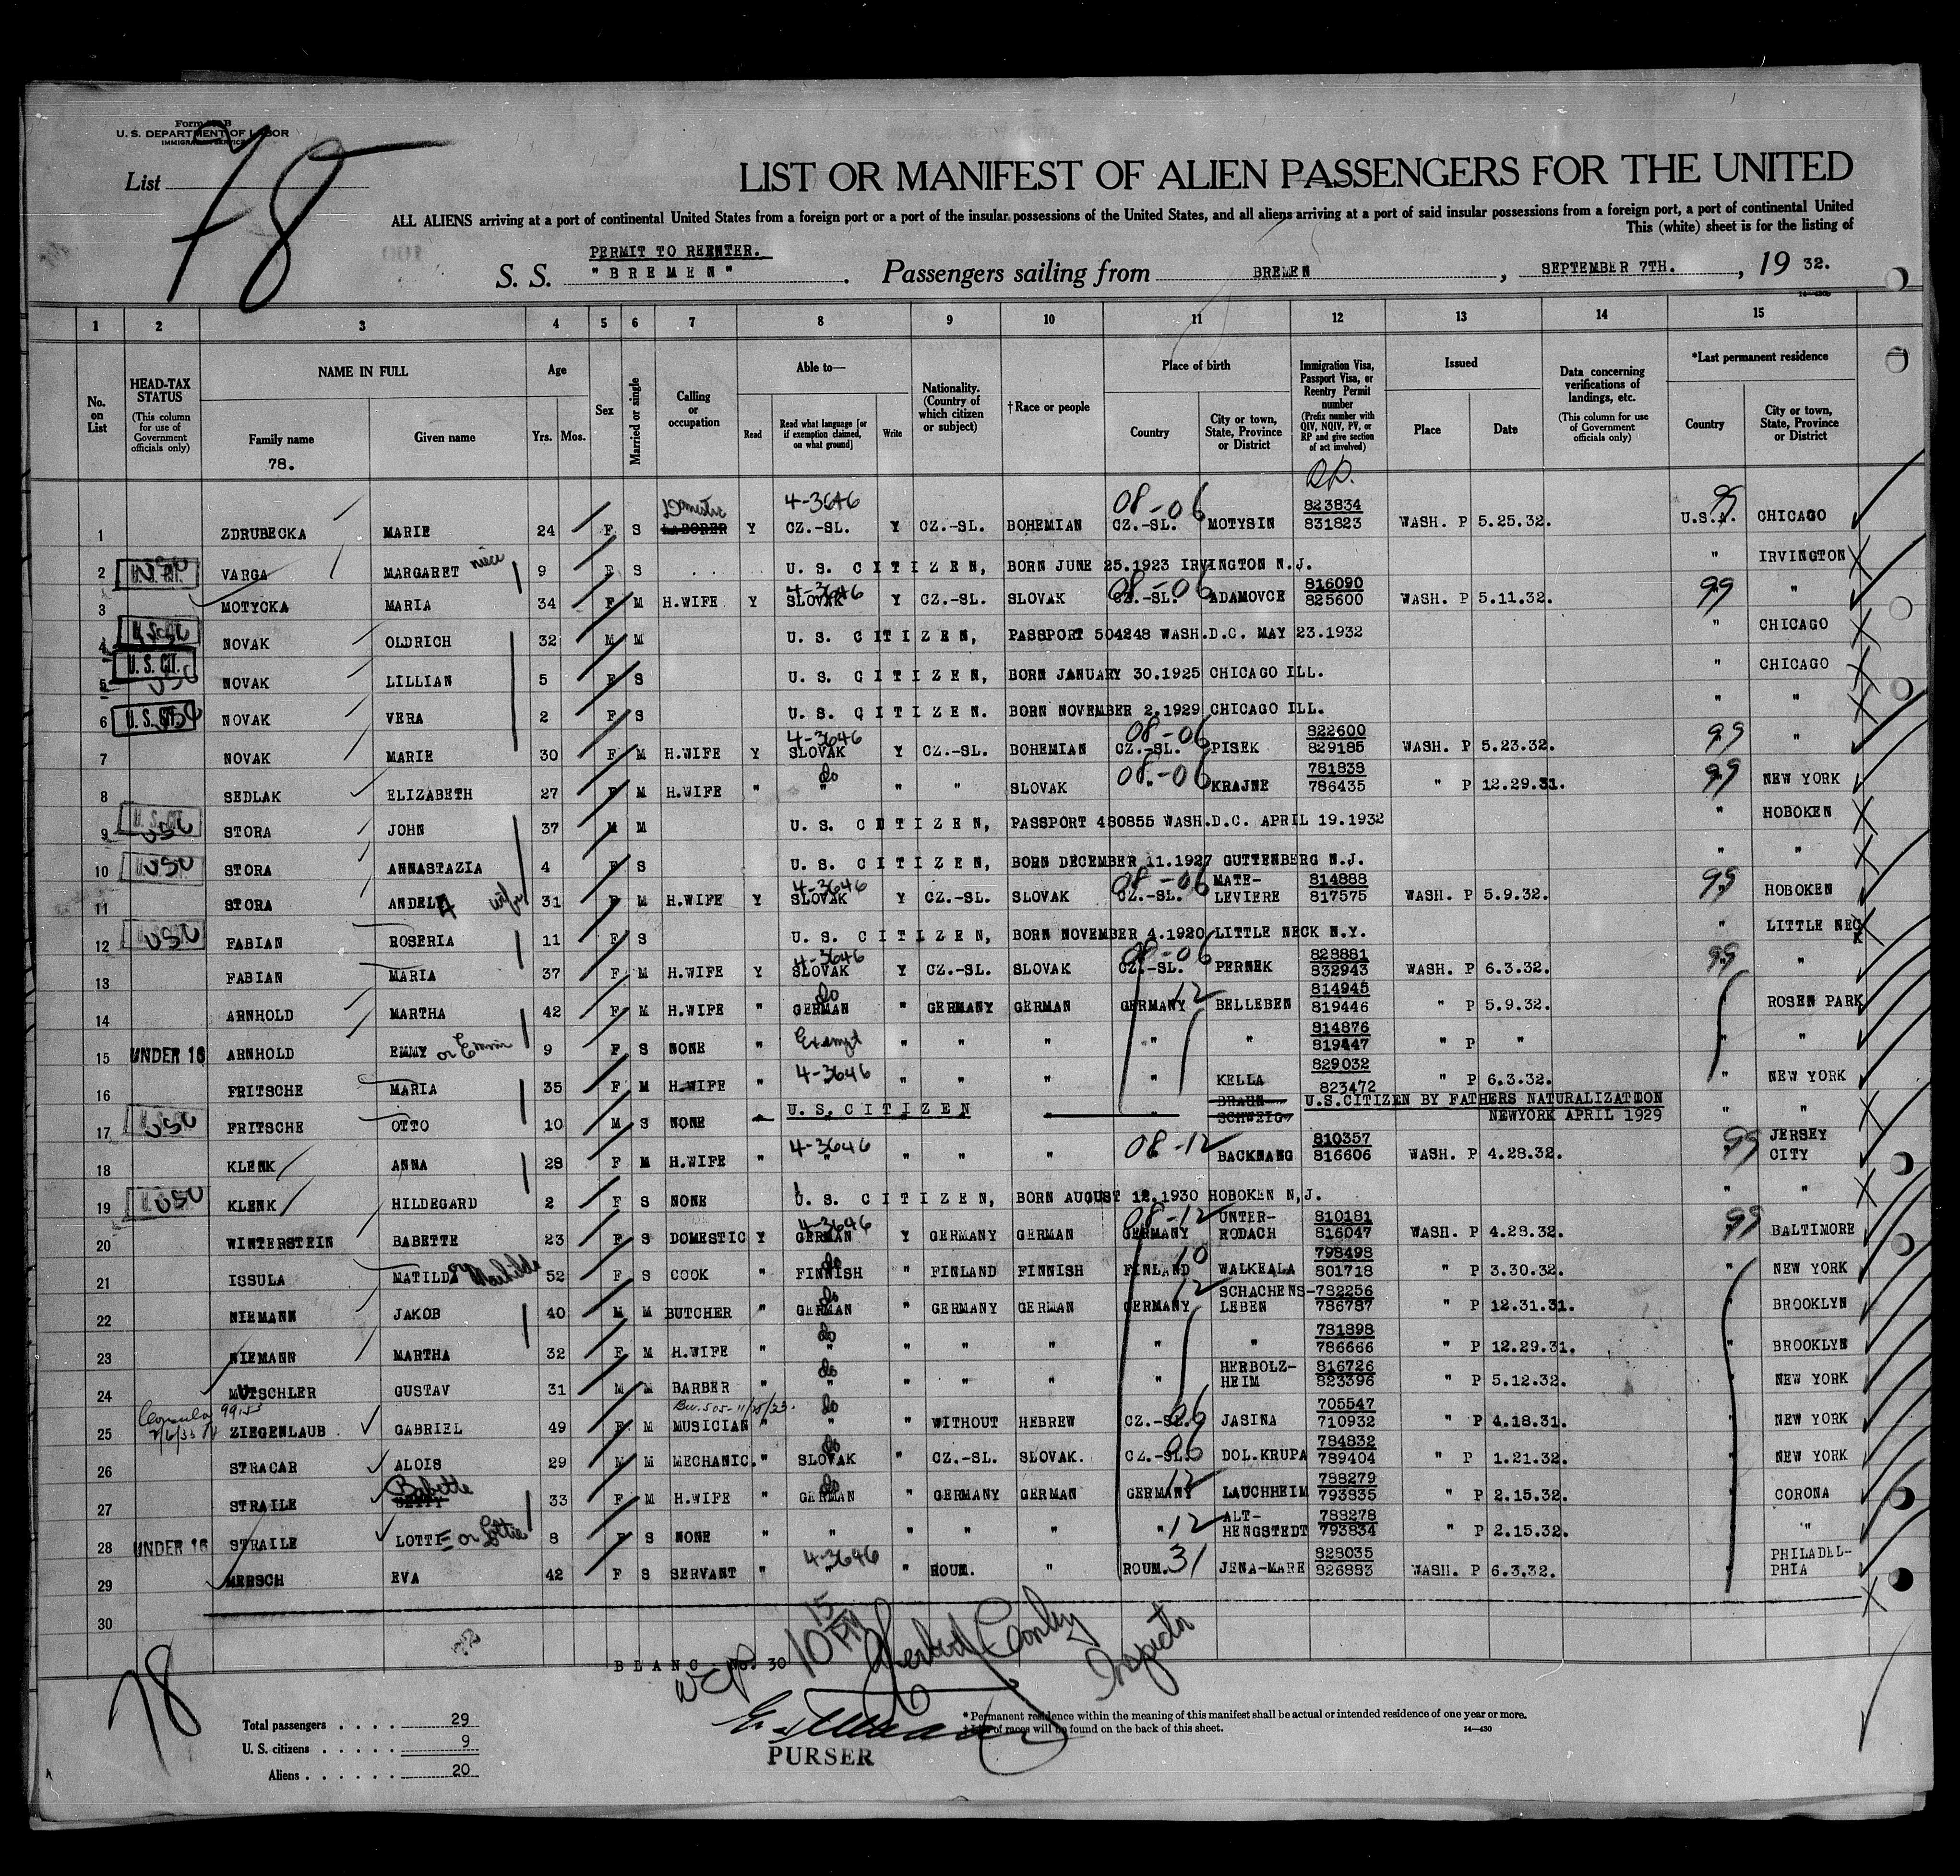 Form
U. S. DEPARTMENT OF LABOR
IMMIGRATION SERVICE
List
78
LIST OR MANIFEST OF ALIEN PASSENGERS FOR THE UNITED
ALL ALIENS arriving at a port of continental United States from a foreign port or a port of the insular possessions of the United States, and all aliens arriving at a port of said insular possessions from a foreign port, a port of continental United
This (white) sheet is for the listing of
PERMIT TO REENTER.
S. S. "BREMEN" . Passengers sailing from BREMEN , SEPTEMBER 7TH. , 19 32.
1 2 3 4 5 6 7 8 9 10 11 12 13 14 15
No. on List
HEAD-TAX STATUS (This column for use of Government officials only)
NAME IN FULL Family name Given name
78.
Age Yrs. Mos.
Sex
Married or single
Calling or occupation
Able to— Read Read what language [or if exemption claimed, on what ground] Write
Nationality. (Country of which citizen or subject)
†Race or people
Place of birth Country City or town, State, Province or District
Immigration Visa, Passport Visa, or Reentry Permit number (Prefix number with QIV, NQIV, PV, or RP and give section of act involved)
Issued Place Date
Data concerning verifications of landings, etc. (This column for use of Government officials only)
*Last permanent residence Country City or town, State, Province or District
1 ZDRUBECKA MARIE 24 F S LABORER Domestic Y 4-3646 CZ.-SL. Y CZ.-SL. BOHEMIAN 08-06 CZ.-SL. MOTYSIN 823834 831823 WASH. P 5.25.32. U.S.A. 99 CHICAGO
2 U.S. CIT. USC VARGA MARGARET niece 9 F S U. S. CITIZEN, BORN JUNE 25.1923 IRVINGTON N.J. " IRVINGTON
3 MOTYCKA MARIA 34 F M H.WIFE Y 4-3646 SLOVAK Y CZ.-SL. SLOVAK 08-06 CZ.-SL. ADAMOVCE 816090 825600 WASH. P 5.11.32. 99 "
4 USC NOVAK OLDRICH 32 M M U. S. CITIZEN, PASSPORT 504248 WASH.D.C. MAY 23.1932 " CHICAGO
5 U. S. CIT. USC NOVAK LILLIAN 5 F S U. S. CITIZEN, BORN JANUARY 30.1925 CHICAGO ILL. " CHICAGO
6 U. S. CIT. USC NOVAK VERA 2 F S U. S. CITIZEN. BORN NOVEMBER 2.1929 CHICAGO ILL. " "
7 NOVAK MARIE 30 F M H.WIFE Y 4-3646 SLOVAK Y CZ.-SL. BOHEMIAN 08-06 CZ.-SL. PISEK 822600 829185 WASH. P 5.23.32. 99 "
8 SEDLAK ELIZABETH 27 F M H.WIFE " do " " " SLOVAK 08-06 " KRAJNE 781838 786435 " P 12.29.31. 99 NEW YORK
9 U. S. CIT. USC STORA JOHN 37 M M U. S. CITIZEN, PASSPORT 480855 WASH.D.C. APRIL 19.1932 " HOBOKEN
10 USC STORA ANNASTAZIA 4 F S U. S. CITIZEN, BORN DECEMBER 11.1927 GUTTENBERG N.J. " "
11 STORA ANDELA wife 31 F M H.WIFE Y 4-3646 SLOVAK Y CZ.-SL. SLOVAK 08-06 CZ.-SL. MATE-LEVIERE 814888 817575 WASH. P 5.9.32. 99 HOBOKEN
12 USC FABIAN ROSERIA 11 F S U. S. CITIZEN, BORN NOVEMBER 4.1920 LITTLE NECK N.Y. " LITTLE NECK
13 FABIAN MARIA 37 F M H.WIFE Y 4-3646 SLOVAK Y CZ.-SL. SLOVAK 08-06 CZ.-SL. PERNEK 828881 832943 WASH. P 6.3.32. 99 "
14 ARNHOLD MARTHA 42 F M H.WIFE " do GERMAN " GERMANY GERMAN GERMANY 12 BELLEBEN 814945 819446 " P 5.9.32. ROSEN PARK
15 UNDER 16 ARNHOLD EMMY or Emmi 9 F S NONE " Exempt " " " " " 814876 819447 " P " " "
16 FRITSCHE MARIA 35 F M H.WIFE " 4-3646 " " " " KELLA 829032 823472 " P 6.3.32. " NEW YORK
17 USC FRITSCHE OTTO 10 M S NONE U.S.CITIZEN " BRAUN-SCHWEIG U.S.CITIZEN BY FATHERS NATURALIZATION NEWYORK APRIL 1929 " "
18 KLENK ANNA 28 F M H.WIFE " 4-3646 " " " " 08-12 BACKNANG 810357 816606 WASH. P 4.28.32. 99 JERSEY CITY
19 USC KLENK HILDEGARD 2 F S NONE U. S. CITIZEN, BORN AUGUST 12.1930 HOBOKEN N.J. " "
20 WINTERSTEIN BABETTE 23 F S DOMESTIC Y 4-3646 GERMAN Y GERMANY GERMAN 08-12 GERMANY UNTER-RODACH 810181 816047 WASH. P 4.28.32. 99 BALTIMORE
21 ISSULA MATILDA or Mathilda 52 F S COOK " do FINNISH " FINLAND FINNISH FINLAND 10 WALKEALA 798498 801718 " P 3.30.32. " NEW YORK
22 NIEMANN JAKOB 40 M M BUTCHER " do GERMAN " GERMANY GERMAN GERMANY 12 SCHACHENS-LEBEN 782256 786787 " P 12.31.31. " BROOKLYN
23 NIEMANN MARTHA 32 F M H.WIFE " do " " " " " " 781898 786666 " P 12.29.31. " BROOKLYN
24 MUTSCHLER GUSTAV 31 M M BARBER " do " " " " " HERBOLZ-HEIM 816726 823396 " P 5.12.32. " NEW YORK
25 ZIEGENLAUB GABRIEL 49 F M MUSICIAN " do " " WITHOUT HEBREW CZ.-SL. 06 JASINA 705547 710932 " P 4.18.31. " NEW YORK
26 STRACAR ALOIS 29 M M MECHANIC. " do SLOVAK " CZ.-SL. SLOVAK. CZ.-SL. 06 DOL.KRUPA 784832 789404 " P 1.21.32. " NEW YORK
27 STRAILE Babette 33 F M H.WIFE " do GERMAN " GERMANY GERMAN GERMANY 12 LAUCHHEIM 788279 793835 " P 2.15.32. CORONA
28 UNDER 16 STRAILE LOTTE or Lottie 8 F S NONE " " " " " " 12 ALT-HENGSTEDT 788278 793834 " P 2.15.32. "
29 MERSCH EVA 42 F S SERVANT " 4-3646 " ROUM. " ROUM. 31 JENA-MARE 828035 826883 WASH. P 6.3.32. PHILADEL-PHIA
30
BLANC No. 30
10 15 PM
Inspector
78
PURSER
Total passengers . . . . 29
U. S. citizens . . . . . 9
Aliens . . . . . . 20
* Permanent residence within the meaning of this manifest shall be actual or intended residence of one year or more.
† List of races will be found on the back of this sheet.
14—430